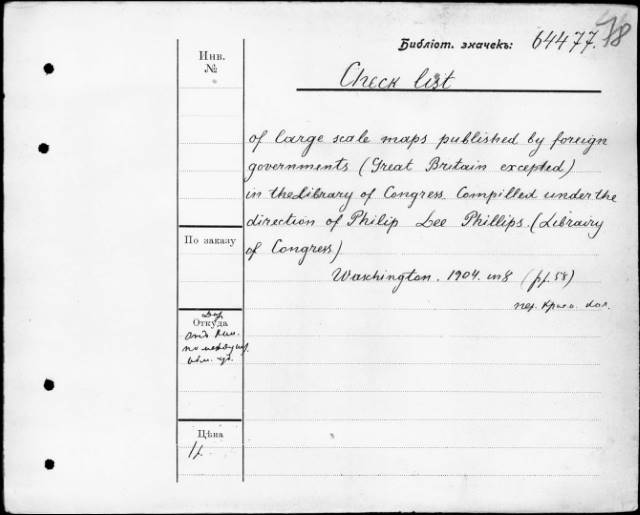 Библіот. значекъ: 64477.
Инв.
№
Check list
of large scale maps published by foreign
governments (Great Britain excepted)
in the Library of Congress. Compilled under the
direction of Philip Lee Phillips. (Librairy
of Congress)
Waschington. 1904. in 8 (pf. 58)
По заказу
Откуда
Цѣна